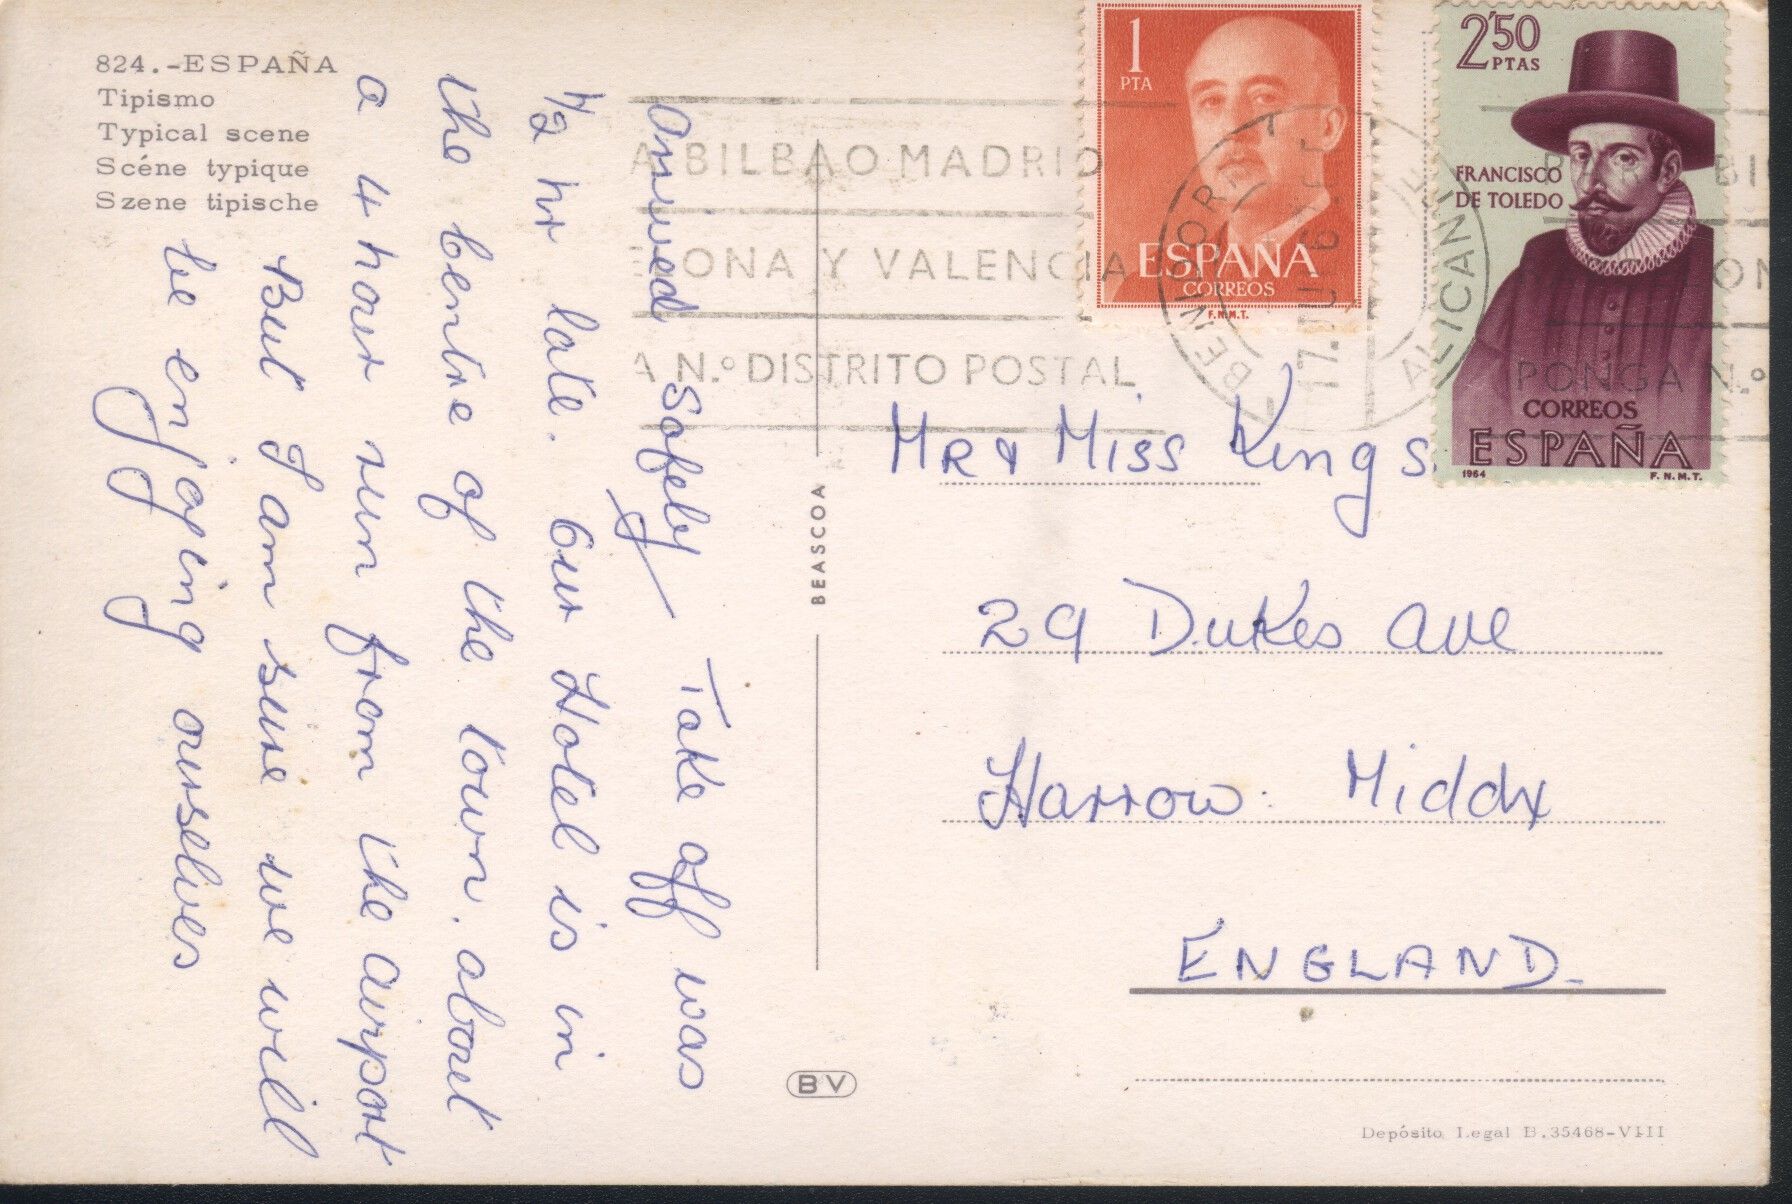 824.-ESPAÑA
Tipismo
Typical scene
Scéne typique
Szene tipische
Arrived safely Take off was
1/2 hr late. Our Hotel is in
the centre of the town. about
a 4 hour run from the airport
But I am sure we will
be enjoying ourselves
BEASCOA
BV
1
PTA
ESPAÑA
CORREOS
F.N.M.T.
2'50
PTAS
FRANCISCO
DE TOLEDO
CORREOS
ESPAÑA
1964
F.N.M.T.
A BILBAO MADRID
ONA Y VALENCIA
A N.º DISTRITO POSTAL
BENIDORM
ALICANTE
17.
PONGA N.º
MR & MISS Kings
29 Dukes Ave
Harrow. Middx
ENGLAND.
Depósito Legal B.35468-VIII